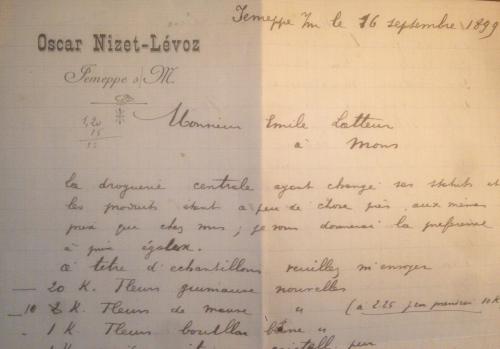 Jemeppe s/m le 16 septembre 1899
Oscar Nizet-Lévoz
Jemeppe s/M.
1,20
15
Monsieur Emile Latteur
à Mons
La droguerie centrale ayant changé ses statuts et
les produits étant a peu de chose près aux mêmes
prix que chez vous; je vous donnerai la préférence
à prix égaux.
à titre d'echantillons veuillez m'envoyer
20 K. Fleurs guimauve nouvelles
10 K. Fleurs de mauve " (à 225
1 K. Fleurs bouillon "
1 K.